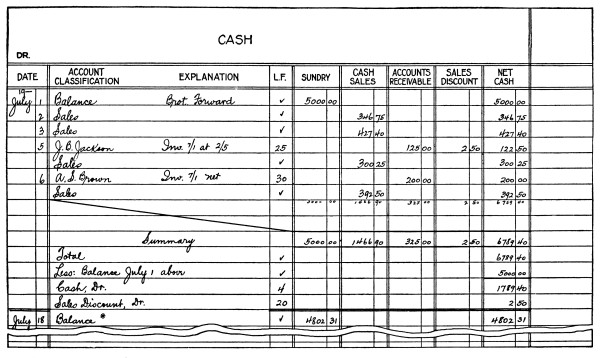 CASH
DR.
DATE ACCOUNT CLASSIFICATION EXPLANATION L.F. SUNDRY CASH SALES ACCOUNTS RECEIVABLE SALES DISCOUNT NET CASH
19—
July 1 Balance Brot. Forward ✓ 5000 00 5000 00
2 Sales ✓ 346 75 346 75
3 Sales ✓ 427 40 427 40
5 J. B. Jackson Inv. 7/1 at 2/5 25 125 00 2 50 122 50
Sales ✓ 300 25 300 25
6 A. S. Brown Inv. 7/1 net 30 200 00 200 00
Sales ✓ 392 50 392 50
5000 00 1466 90 325 00 2 50 6789 40
Summary 5000 00 1466 90 325 00 2 50 6789 40
Total ✓ 6789 40
Less: Balance July 1 above ✓ 5000 00
Cash, Dr. 4 1789 40
Sales Discount, Dr. 20 2 50
July 18 Balance * ✓ 4802 31 4802 31